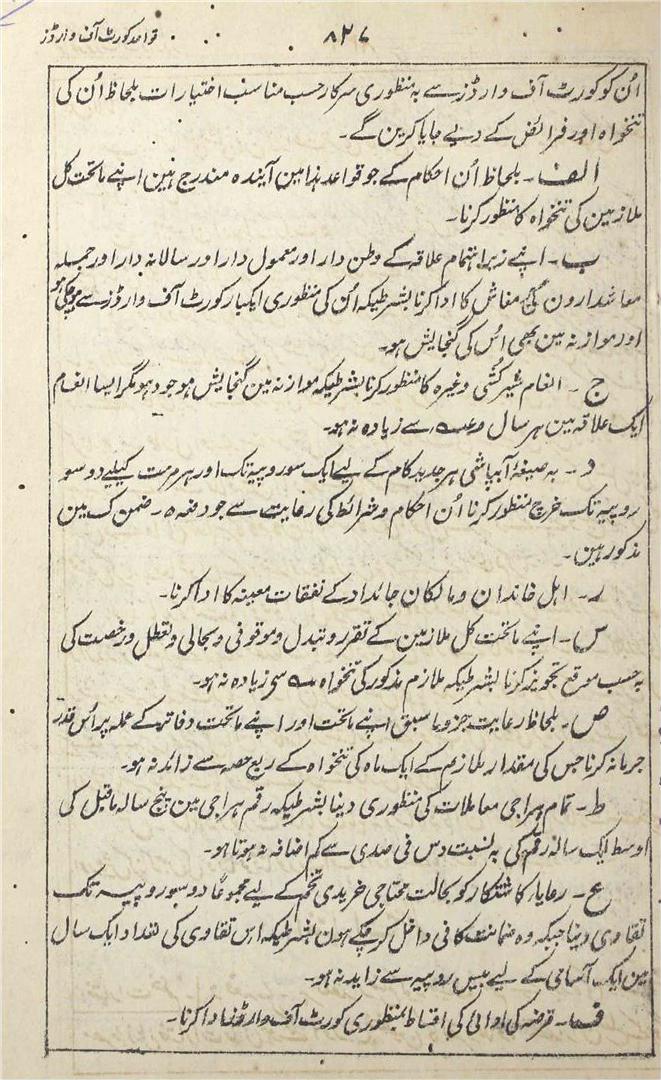 ۸۲۷ قواعد کورٹ آف وارڈز
اُن کو کورٹ آف وارڈز سے بہ منظوری سرکار حسب مناسب اختیارات بلحاظ اُن کی
تنخواہ اور فرائض کے دیے جایا کرین گے۔
الف۔ بلحاظ اُن احکام کے جو قواعد ہذا مین آیندہ مندرج ہین اپنے ماتحت کل
ملازمین کی تنخواہ کا منظور کرنا۔
ب۔ اپنے زیر اہتمام علاقہ کے وطن دار اور معمول دار اور سالانہ دار اور جملہ
معاشدارون کی معاش کا ادا کرنا بشرطیکہ اُن کی منظوری ایکبار کورٹ آف وارڈز سے ہو چکی ہو
اور موازنہ مین بھی اُس کی گنجایش ہو۔
ج۔ انعام شیر کُشی وغیرہ کا منظور کرنا بشرطیکہ موازنہ مین گنجایش موجود ہو مگر ایسا انعام
ایک علاقہ مین ہر سال سے زیادہ نہ ہو۔
د۔ بہ صیغۂ آبپاشی ہر جدید کام کے لیے ایک سو روپیہ تک اور ہر مرمت کیلیے دو سو
روپیہ تک خرچ منظور کرنا اُن احکام و شرائط کی رعایت سے جو دفعہ ۵۔ ضمن ک مین
مذکور ہین۔
ر۔ اہل خاندان و مالکان جائداد کے نفقات معینہ کا ادا کرنا۔
س۔ اپنے ماتحت کل ملازمین کے تقرر و تبدل و موقوفی و بحالی و تعطل و رخصت کی
بہ حسب موقع تجویز کرنا بشرطیکہ ملازم مذکور کی تنخواہ سے زیادہ نہ ہو۔
ص۔ بلحاظ رعایت جزو ما سبق اپنے ماتحت اور اپنے ماتحت دفاتر کے عملہ پر اُس قدر
جرمانہ کرنا جس کی مقدار ملازم کے ایک ماہ کی تنخواہ کے ربع حصہ سے زائد نہ ہو۔
ط۔ تمام ہراجی معاملات کی منظوری دینا بشرطیکہ رقم ہراجی مین پنج سالہ ماقبل کی
اوسط ایک سالہ رقم کی بہ نسبت دس فی صدی سے کم اضافہ نہ ہوتا ہو۔
ع۔ رعایاے کاشتکار کو بحالت محتاجی خریدی تخم کے لیے مجموعاً دو سو روپیہ تک
تقاوی دینا جبکہ وہ ضمانت کافی داخل کر چکے ہون بشرطیکہ اس تقاوی کی تعداد ایک سال
مین ایک آسامی کے لیے بیس روپیہ سے زاید نہ ہو۔
ف۔ قرضہ کی ادائی کی اقساط بمنظوری کورٹ آف وارڈز ادا کرنا۔